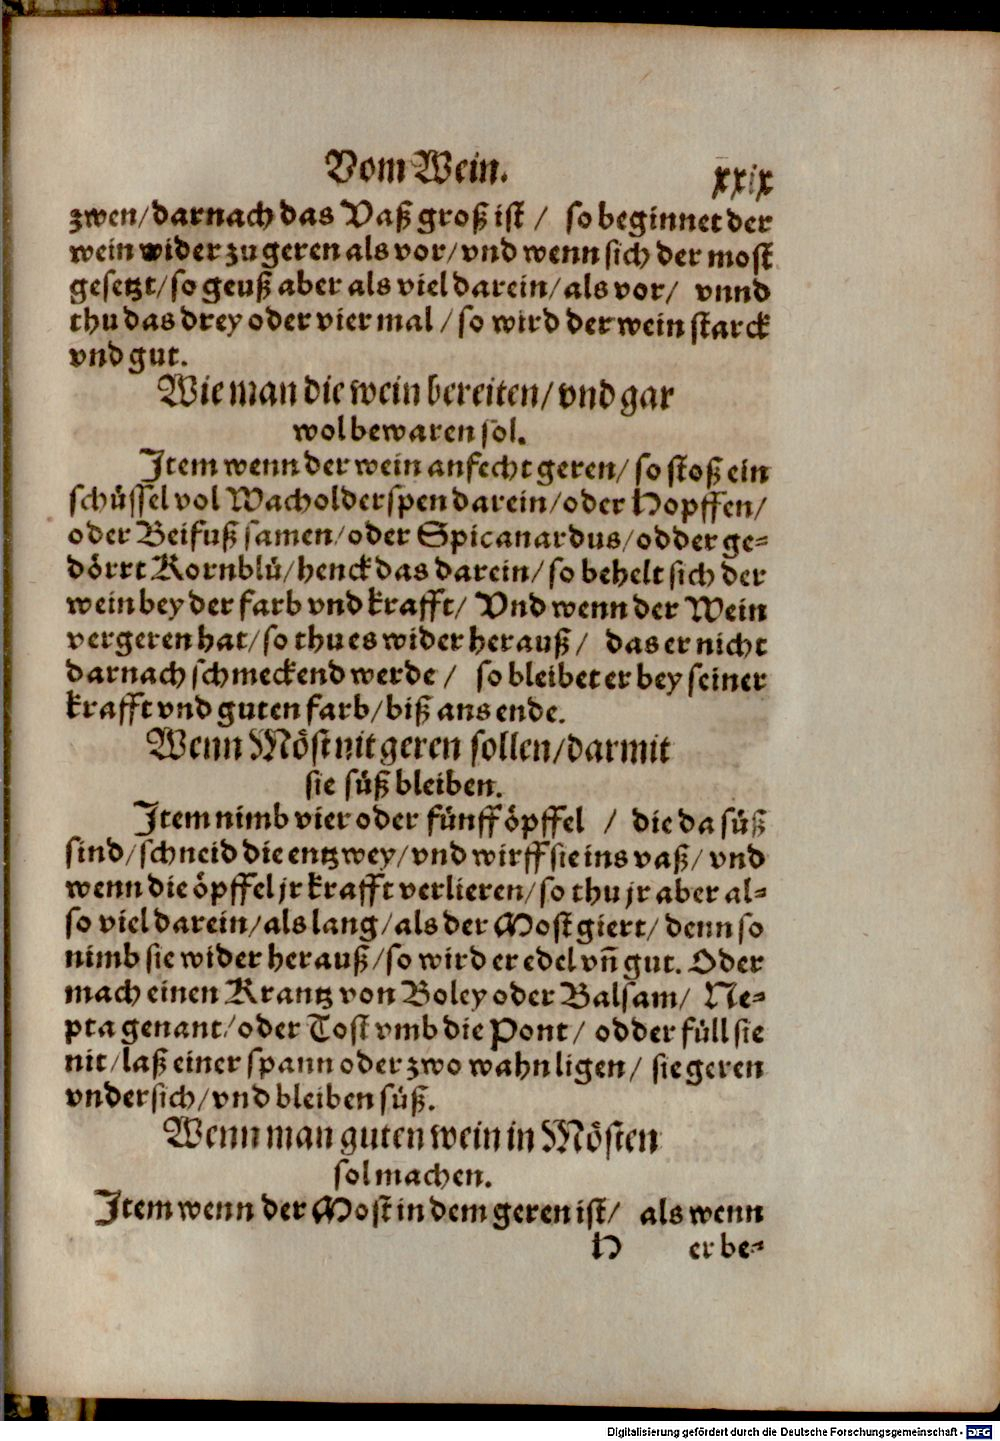 Vom Wein.
xxix
zwen/darnach das Vaß groß ist / so beginnet der
wein wider zu geren als vor/vnd wenn sich der most
gesetzt/so geuß aber als viel darein/als vor/ vnnd
thu das drey oder vier mal/so wird der wein starck
vnd gut.
Wie man die wein bereiten/vnd gar
wol bewaren sol.
Item wenn der wein anfecht geren/so stoß ein
schüssel vol Wacholderspen darein/oder Hopffen/
oder Beifuß samen/oder Spicanardus/odder ge-
dörrt Kornblü/henck das darein/so behelt sich der
wein bey der farb vnd krafft/ Vnd wenn der Wein
vergeren hat/so thu es wider herauß/ das er nicht
darnach schmeckend werde/ so bleibet er bey seiner
krafft vnd guten farb/biß ans ende.
Wenn Möst nit geren sollen/darmit
sie süß bleiben.
Item nimb vier oder fünff öpffel / die da süß
sind/schneid die entzwey/vnd wirff sie ins vaß/vnd
wenn die öpffel jr krafft verlieren/so thu jr aber al-
so viel darein/als lang/als der Most giert/denn so
nimb sie wider herauß/so wird er edel vñ gut. Oder
mach einen Krantz von Boley oder Balsam/ Ne-
pta genant/oder Tost vmb die Pont/ odder füll sie
nit/laß einer spann oder zwo wahn ligen/ sie geren
vndersich/vnd bleiben süß.
Wenn man guten wein in Mösten
sol machen.
Item wenn der Most in dem geren ist/ als wenn
H er be-
Digitalisierung gefördert durch die Deutsche Forschungsgemeinschaft - DFG